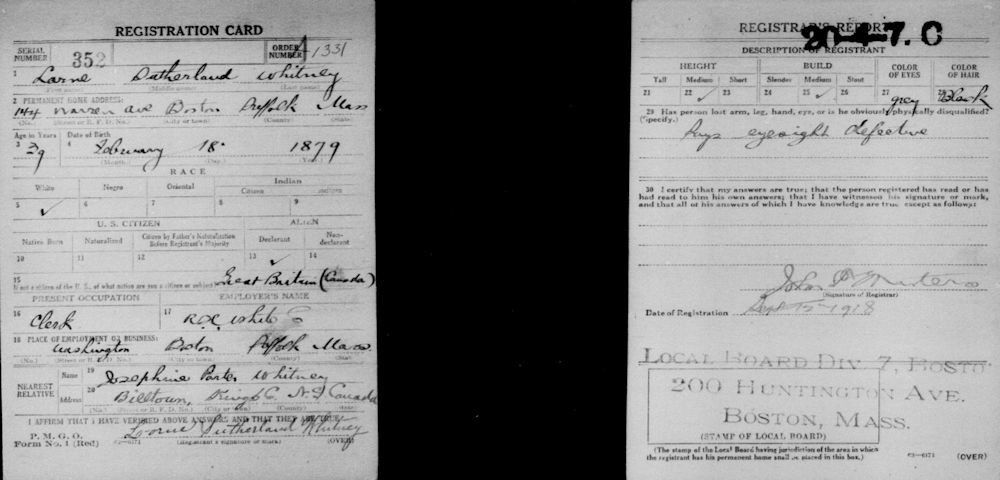 REGISTRATION CARD
SERIAL NUMBER 352 ORDER NUMBER A 1331
1 Lorne Sutherland Whitney
(First name) (Middle name) (Last name)
2 PERMANENT HOME ADDRESS:
144 Warren Ave Boston Suffolk Mass
(No.) (Street or R. F. D. No.) (City or town) (County) (State)
Age in Years Date of Birth
3 39 4 February 18 1879
(Month.) (Day.) (Year.)
RACE
White Negro Oriental Indian
Citizen
5 ✓ 6 7 8 9
U. S. CITIZEN ALIEN
Native Born Naturalized Citizen by Father's Naturalization Before Registrant's Majority Declarant Non-declarant
10 11 12 13 ✓ 14
15 If not a citizen of the U. S., of what nation are you a citizen or subject? Great Britain (Canada)
PRESENT OCCUPATION EMPLOYER'S NAME
16 Clerk 17 R.H. White Co
18 PLACE OF EMPLOYMENT OR BUSINESS:
Washington Boston Suffolk Mass
(No.) (Street or R. F. D. No.) (City or town) (County) (State)
NEAREST RELATIVE Name 19 Josephine Porter Whitney
Address 20 Billtown, Kings Co. N.S Canada
(No.) (Street or R. F. D. No.) (City or town) (County) (State)
I AFFIRM THAT I HAVE VERIFIED ABOVE ANSWERS AND THAT THEY ARE TRUE
P. M. G. O.
Form No. 1 (Red) Lorne Sutherland Whitney
(Registrant's signature or mark) (OVER)
REGISTRAR'S REPORT
20-4-7. C
DESCRIPTION OF REGISTRANT
HEIGHT BUILD COLOR OF EYES COLOR OF HAIR
Tall Medium Short Slender Medium Stout
21 22 ✓ 23 24 25 ✓ 26 27 grey 28 Black
29 Has person lost arm, leg, hand, eye, or is he obviously physically disqualified?
(Specify.)
Says eyesight defective
30 I certify that my answers are true; that the person registered has read or has
had read to him his own answers; that I have witnessed his signature or mark,
and that all of his answers of which I have knowledge are true except as follows:
John
(Signature of Registrar)
Date of Registration Sept 15 1918
LOCAL BOARD DIV 7, BOSTO
200 HUNTINGTON AVE.
BOSTON, MASS.
(STAMP OF LOCAL BOARD)
(The stamp of the Local Board having jurisdiction of the area in which
the registrant has his permanent home shall be placed in this box.)
03—6171 (OVER)